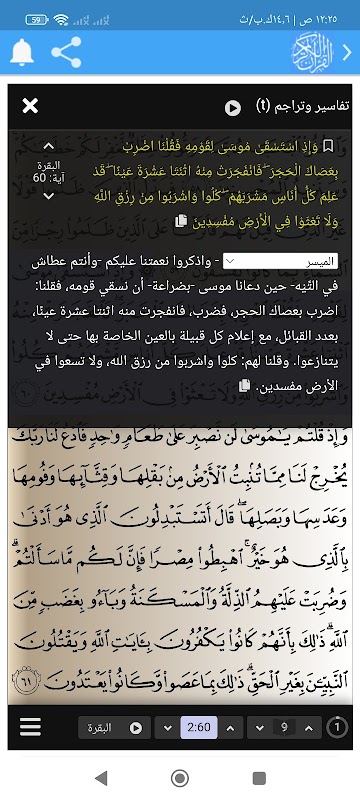 ١٢:٢٥ ص | ١٤٫٦ك.ب/ث
59
القرآن الكريم
تفاسير وتراجم (t)
وَإِذِ اسْتَسْقَىٰ مُوسَىٰ لِقَوْمِهِ فَقُلْنَا اضْرِبْ
بِعَصَاكَ الْحَجَرَ ۖ فَانْفَجَرَتْ مِنْهُ اثْنَتَا عَشْرَةَ عَيْنًا ۖ قَدْ
عَلِمَ كُلُّ أُنَاسٍ مَشْرَبَهُمْ ۖ كُلُوا وَاشْرَبُوا مِنْ رِزْقِ اللَّهِ
وَلَا تَعْثَوْا فِي الْأَرْضِ مُفْسِدِينَ
البقرة
آية: 60
الميسر - واذكروا نعمتنا عليكم -وأنتم عطاش
في التِّيْه- حين دعانا موسى -بضراعة- أن نسقي قومه، فقلنا:
اضرب بعصاك الحجر، فضرب، فانفجرت منه اثنتا عشرة عينًا،
بعدد القبائل، مع إعلام كل قبيلة بالعين الخاصة بها حتى لا
يتنازعوا. وقلنا لهم: كلوا واشربوا من رزق الله، ولا تسعوا في
الأرض مفسدين.
وَإِذْ قُلْتُمْ يَٰمُوسَىٰ لَن نَّصْبِرَ عَلَىٰ طَعَامٍ وَٰحِدٍ فَٱدْعُ لَنَا رَبَّكَ
يُخْرِجْ لَنَا مِمَّا تُنۢبِتُ ٱلْأَرْضُ مِنۢ بَقْلِهَا وَقِثَّآئِهَا وَفُومِهَا
وَعَدَسِهَا وَبَصَلِهَا ۖ قَالَ أَتَسْتَبْدِلُونَ ٱلَّذِى هُوَ أَدْنَىٰ
بِٱلَّذِى هُوَ خَيْرٌ ۚ ٱهْبِطُوا۟ مِصْرًا فَإِنَّ لَكُم مَّا سَأَلْتُمْ ۗ
وَضُرِبَتْ عَلَيْهِمُ ٱلذِّلَّةُ وَٱلْمَسْكَنَةُ وَبَآءُو بِغَضَبٍ مِّنَ
ٱللَّهِ ۗ ذَٰلِكَ بِأَنَّهُمْ كَانُوا۟ يَكْفُرُونَ بِـَٔايَٰتِ ٱللَّهِ وَيَقْتُلُونَ
ٱلنَّبِيِّـۧنَ بِغَيْرِ ٱلْحَقِّ ۗ ذَٰلِكَ بِمَا عَصَوا۟ وَّكَانُوا۟ يَعْتَدُونَ ٦١
1 9 2:60 البقرة